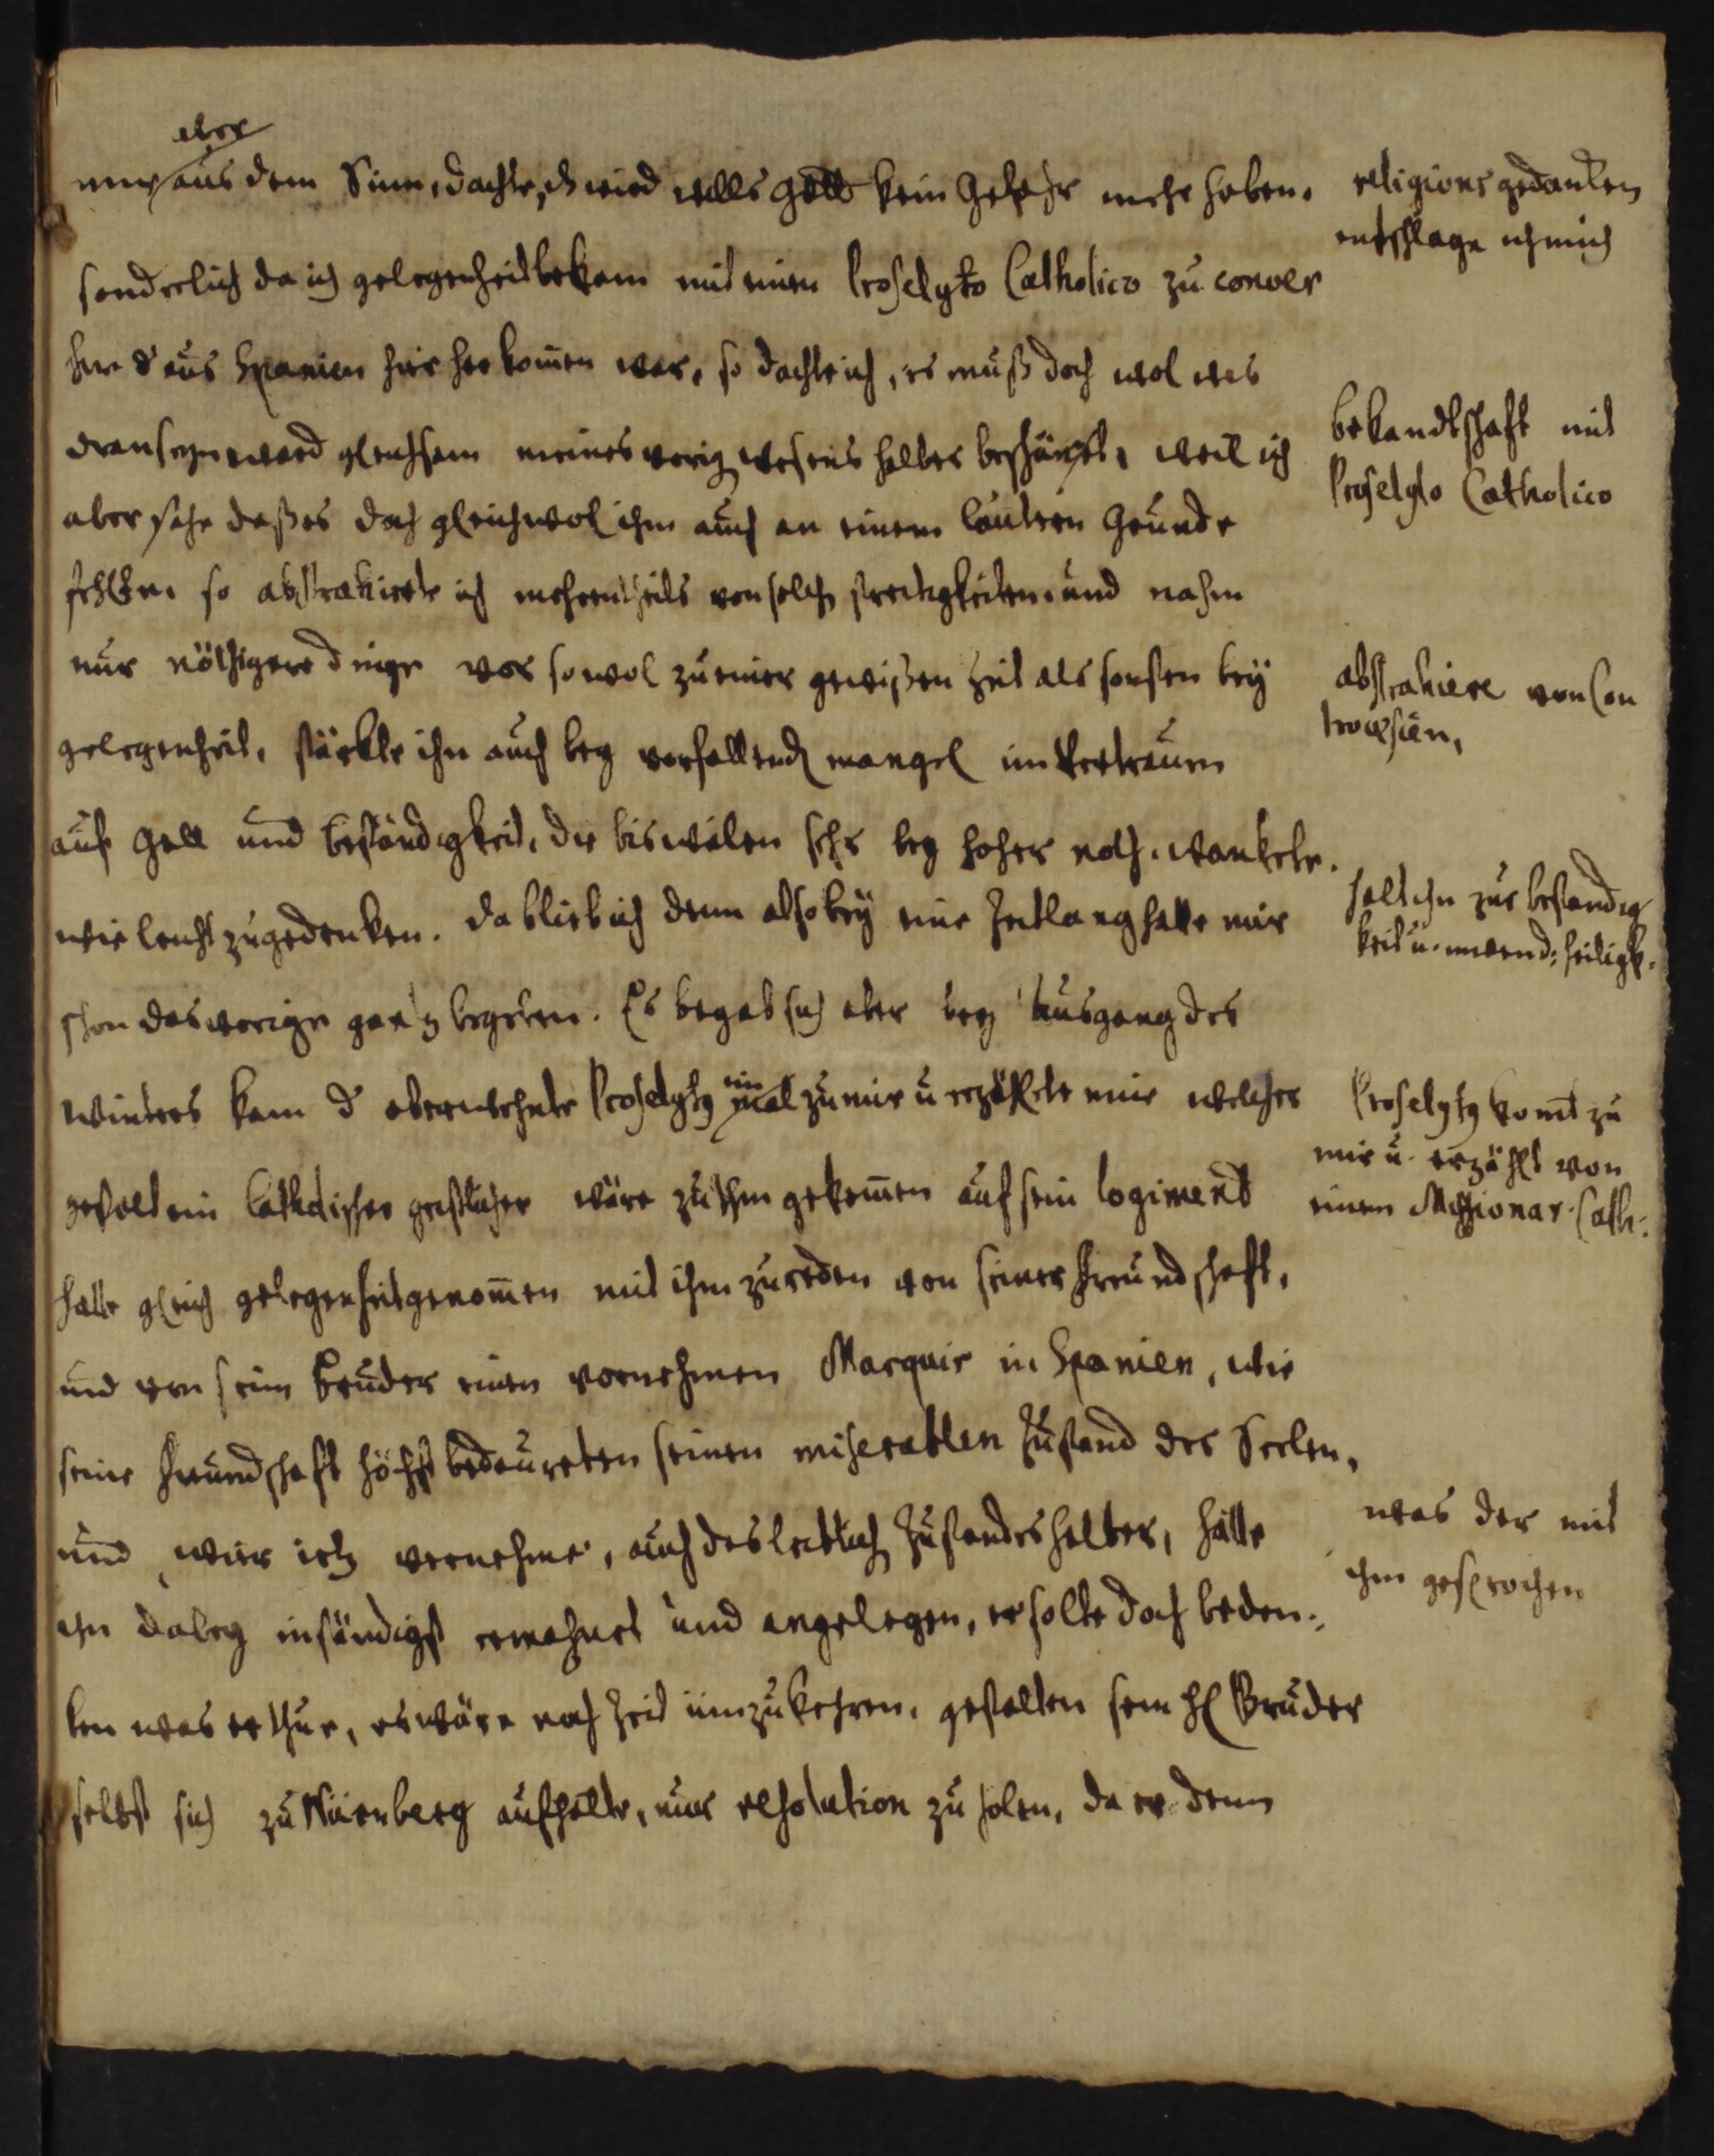 aber
mir aus dem Sinn, dachte, es wird wills Gott kein Gefahr mehr haben.
sonderlich da ich gelegenheit bekam mit einen Proselyto Catholico zu conver
der aus Spanien hier her kom̅en war, so dachte ich, es muß doch wol was
dran seyn ward gleichsam meines vorig wesens halber beschämet, weil ich
aber sahe daß es doch gleichwol ihm auch an einem lautern Grunde
fehlte. so abstrahirte ich mehrentheils von solch streitigkeiten. und nahm
nur nöthigere dinge vor sowol zu einer gewißen Zeit als sonsten bey
gelegenheit, stärkte ihn auch bey vorfallend mangel im Vertrauen
auf Gott und beständigkeit, die bisweilen sehr bey hoher noth wankete.
wie leicht zugedenken. da blieb ich denn also bey eine Zeitlang hatte mir
schon das vorige gantz begeben. Es begab sich aber bey Ausgang des
ein
Winters kam d oberwehnte Proselytg mal zu mir u erzählete mir welcher
gestalt ein Catholischer geistlicher wäre zu ihm gekom̅en auf sein logiment
hätte gleich gelegenheit genom̅en mit ihm zu reden von seiner freundschaft,
und von seim Bruder einen vornehmen Marquir in Spanien, wie
seine freundschaft höchst bedaureten seinen miserablen Zustand der Seelen,
und, wie ich vernehme, auch des leiblich Zustandes halber, hätte
ihn dabey inständigst ermahnet und angelegen, er solte doch beden:
ken was er thue, es wäre noch Zeit umzukehren. gestalten sein H Bruder
selbst sich zu Nürnberg aufhalte, nur resolution zu holen, da er denn
religions gedanken
entschlage ich mich
bekandtschaft mit
Proselyto Catholico
abstrahiere von Con
troversien,
halt ihn zur bestandig
keit u. inwend: heiligk.
Proselytg komt zu
mir u. erzählt von
einen Missionar. Cath:
was der mit
ihm gesprochen